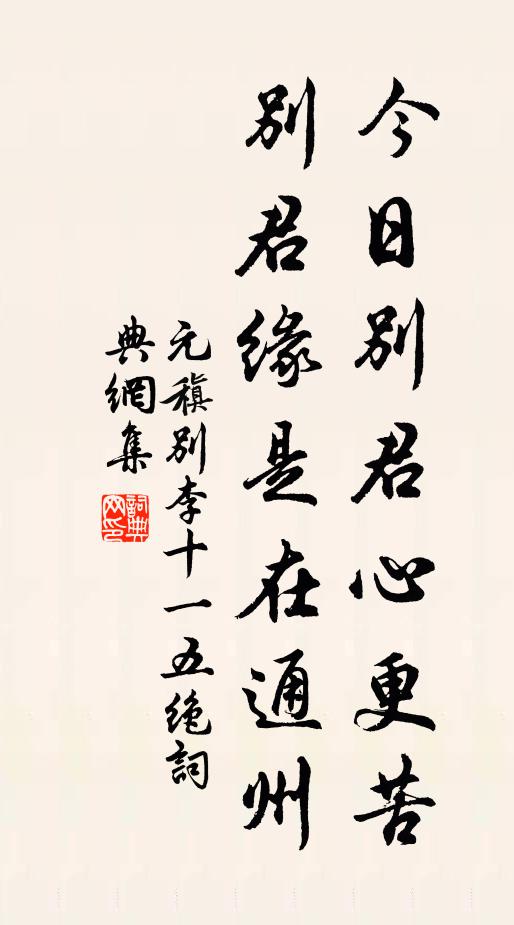 今日別君心更苦
別君緣是在通州
元稹別李十一五絶詞
典網集
詞典網印